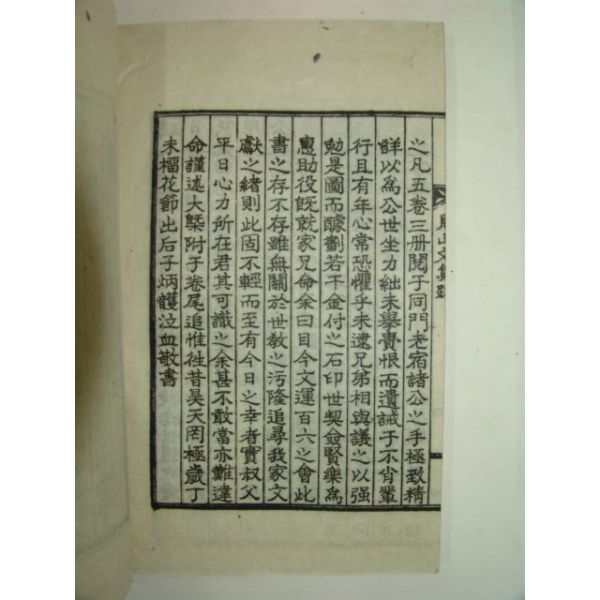 之凡五卷三册閱于同門老宿諸公之手極致精
詳以爲公世坐力絀未擧賫恨而遺誡于不肖輩
行且有年心常恐懼乎未逮兄弟相與議之以强
勉是圖而醵劃若干金付之石印世契僉賢樂爲
惠助役旣就家兄命余曰目今文運百六之會此
書之存不存雖無關於世敎之污隆追尋我家文
獻之緖則此固不輕而至有今日之幸者實叔父
平日心力所在君其可識之余甚不敢當亦難違
命謹述大槩附于卷尾追惟徃昔昊天罔極歲丁
未榴花節出后子炳頀泣血敬書
山文集跋